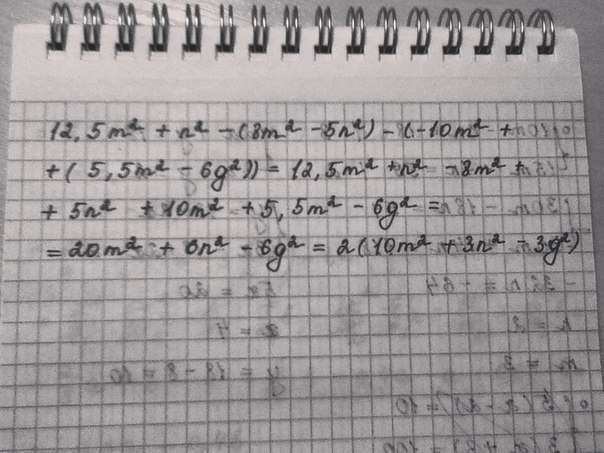 12,5m² + n² - (8m² - 5n²) - (-10m² +
+ (5,5m² - 6g²)) = 12,5m² + n² - 8m² +
+ 5n² + 10m² + 5,5m² - 6g² =
= 20m² + 6n² - 6g² = 2(10m² + 3n² - 3g²)